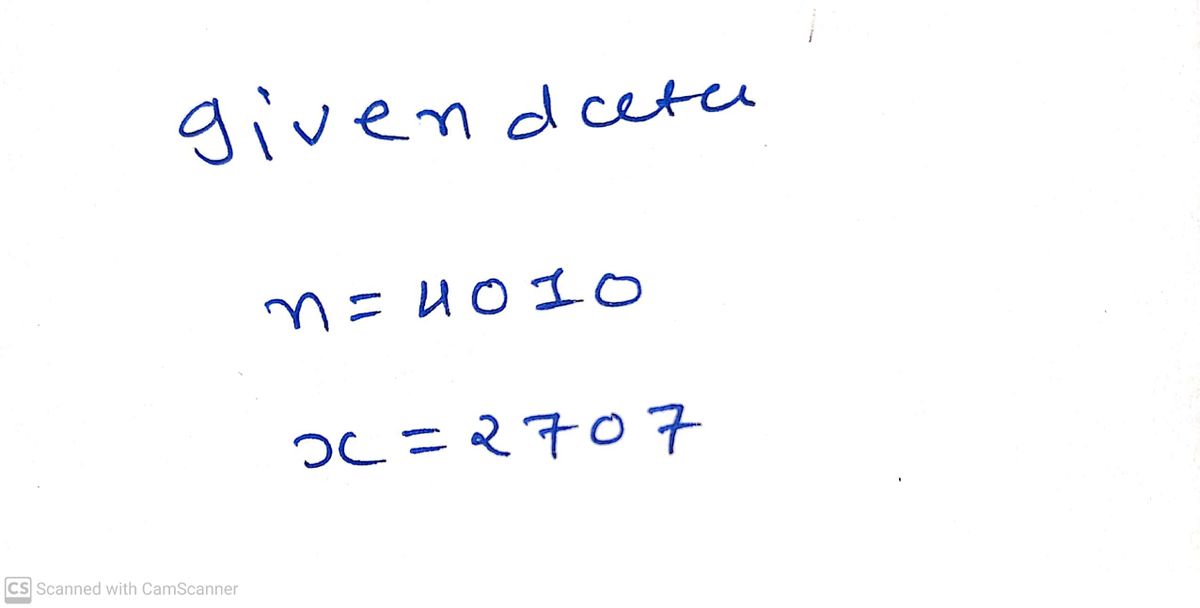 given data
n = 4010
x = 2707
CS Scanned with CamScanner